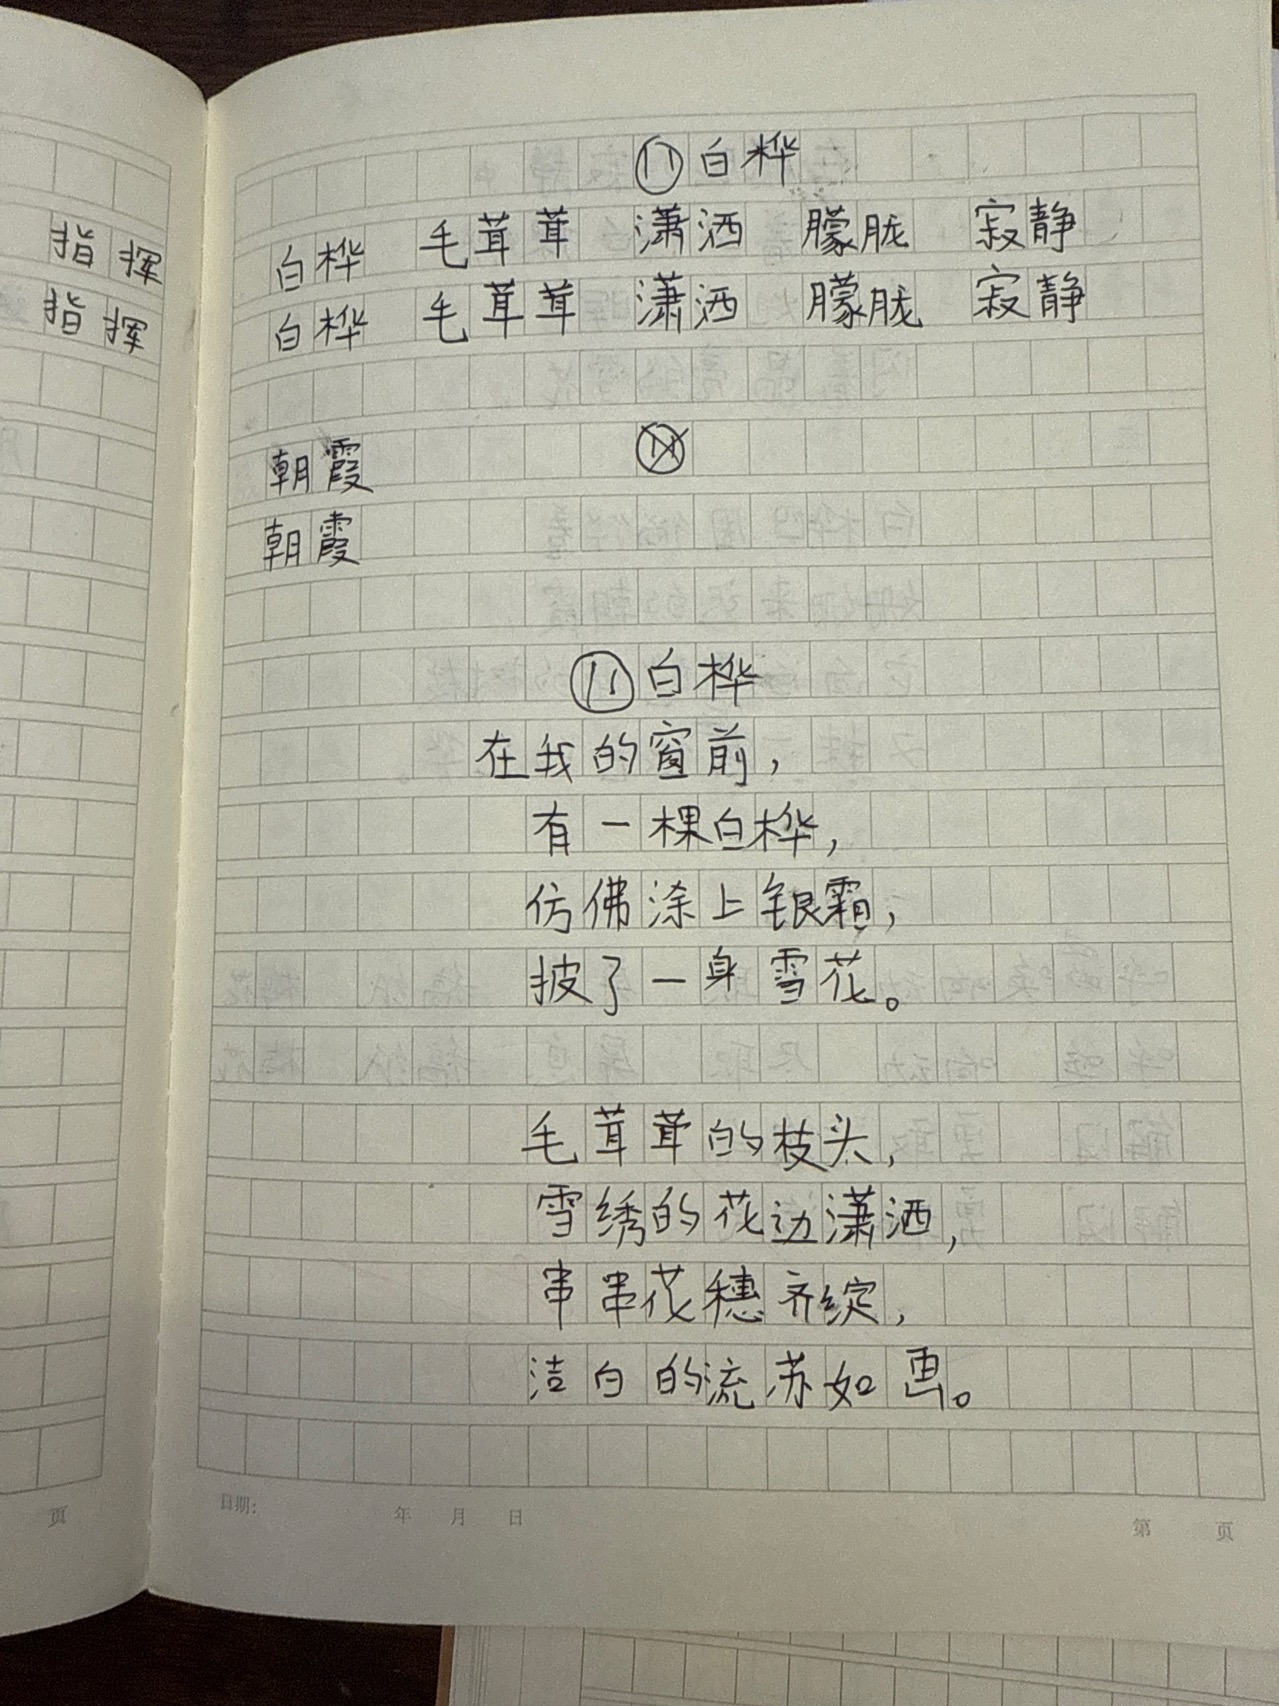 指挥
指挥
⑪白桦
白桦 毛茸茸 潇洒 朦胧 寂静
白桦 毛茸茸 潇洒 朦胧 寂静
朝霞
朝霞
⑪白桦
在我的窗前，
有一棵白桦，
仿佛涂上银霜，
披了一身雪花。
毛茸茸的枝头，
雪绣的花边潇洒，
串串花穗齐绽，
洁白的流苏如画。
日期： 年 月 日
第 页
页